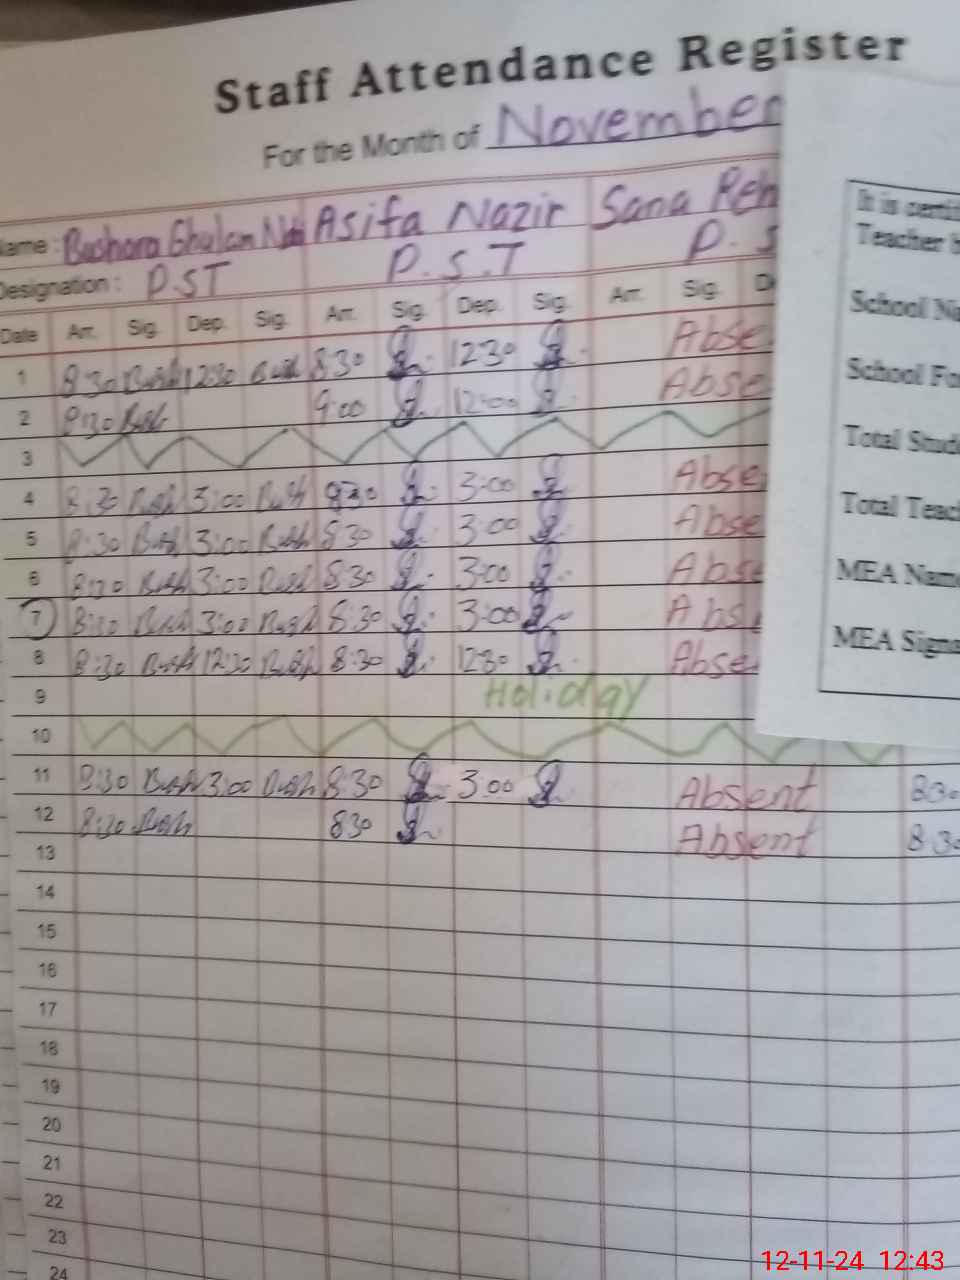 Staff Attendance Register
For the Month of November
Name: Bushara Ghulam Nabi Asifa Nazir Sana Reh
Designation: P.ST P.S.T P.S
Date Arr. Sig. Dep. Sig. Arr. Sig. Dep. Sig. Arr. Sig. De
1 8:30 Bush 12:30 Bush 8:30 12:30 Abse
2 8:30 Bush 9:00 12:00 Abse
3
4 8:30 Bush 3:00 Bush 8:30 3:00 Abse
5 8:30 Bush 3:00 Bush 8:30 3:00 Abse
6 8:30 Bush 3:00 Bush 8:30 3:00 Abse
7 8:30 Bush 3:00 Bush 8:30 3:00 Abs
8 8:30 Bush 12:30 Bush 8:30 12:30 Abse
9 Holiday
10
11 8:30 Bush 3:00 Bush 8:30 3:00 Absent 8:30
12 8:30 Bush 8:30 Absent 8:30
13
14
15
16
17
18
19
20
21
22
23
24
It is certi
Teacher h
School Na
School Fo
Total Stude
Total Teach
MEA Name
MEA Signa
12-11-24 12:43